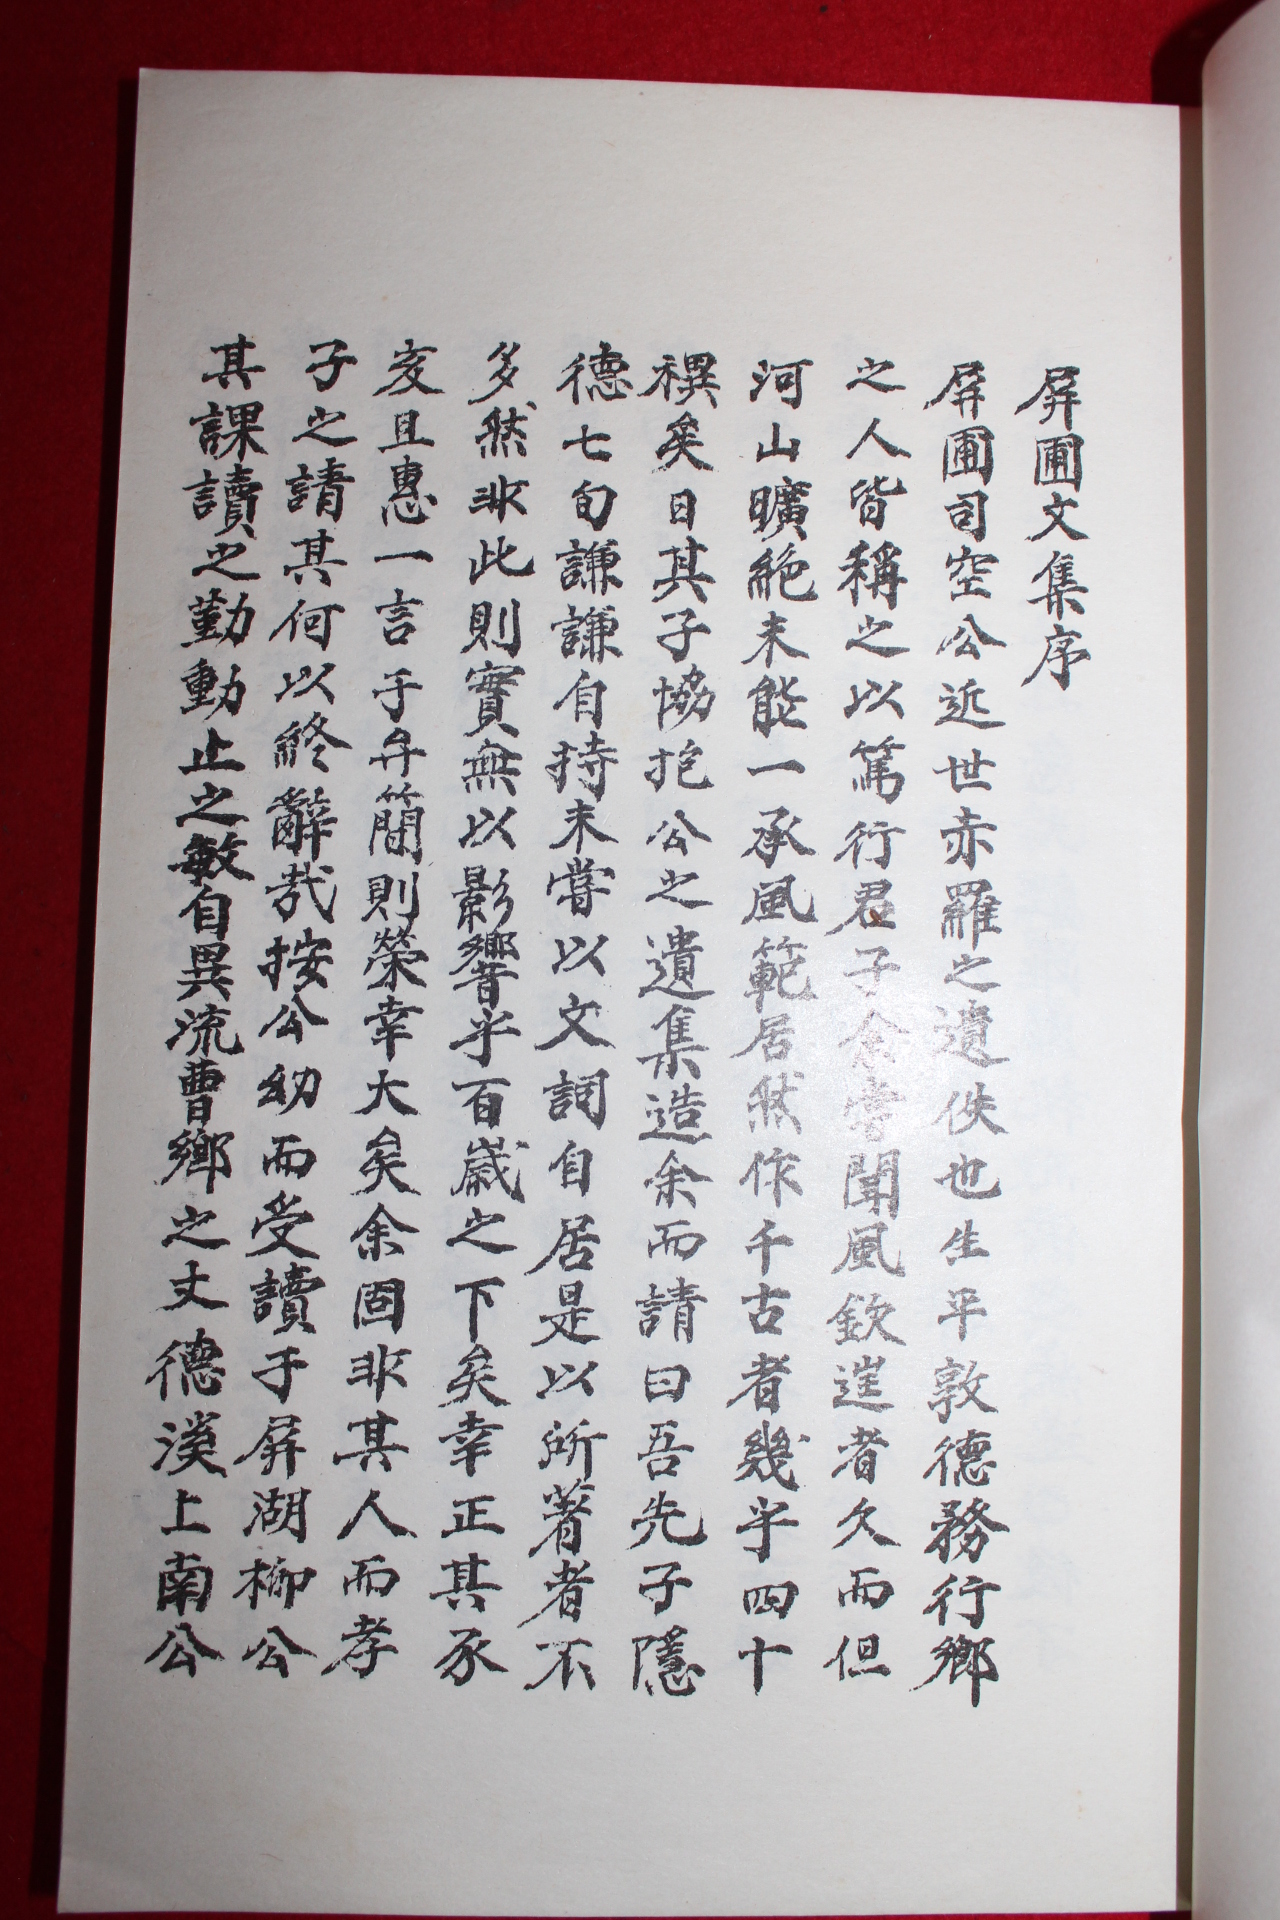 屛圃文集序
屛圃司空公近世赤羅之遺佚也生平敦德務行鄕
之人皆稱之以篤行君子余嘗聞風欽遑者久而但
河山曠絶未能一承風範居然作千古者幾乎四十
禩矣日其子協抱公之遺集造余而請曰吾先子隱
德七旬謙謙自持未嘗以文詞自居是以所著者不
多然非此則實無以影響乎百歲之下矣幸正其承
亥且惠一言于弁簡則榮幸大矣余固非其人而孝
子之請其何以終辭哉按公幼而受讀于屛湖柳公
其課讀之勤動止之敏自異流曹鄕之丈德溪上南公